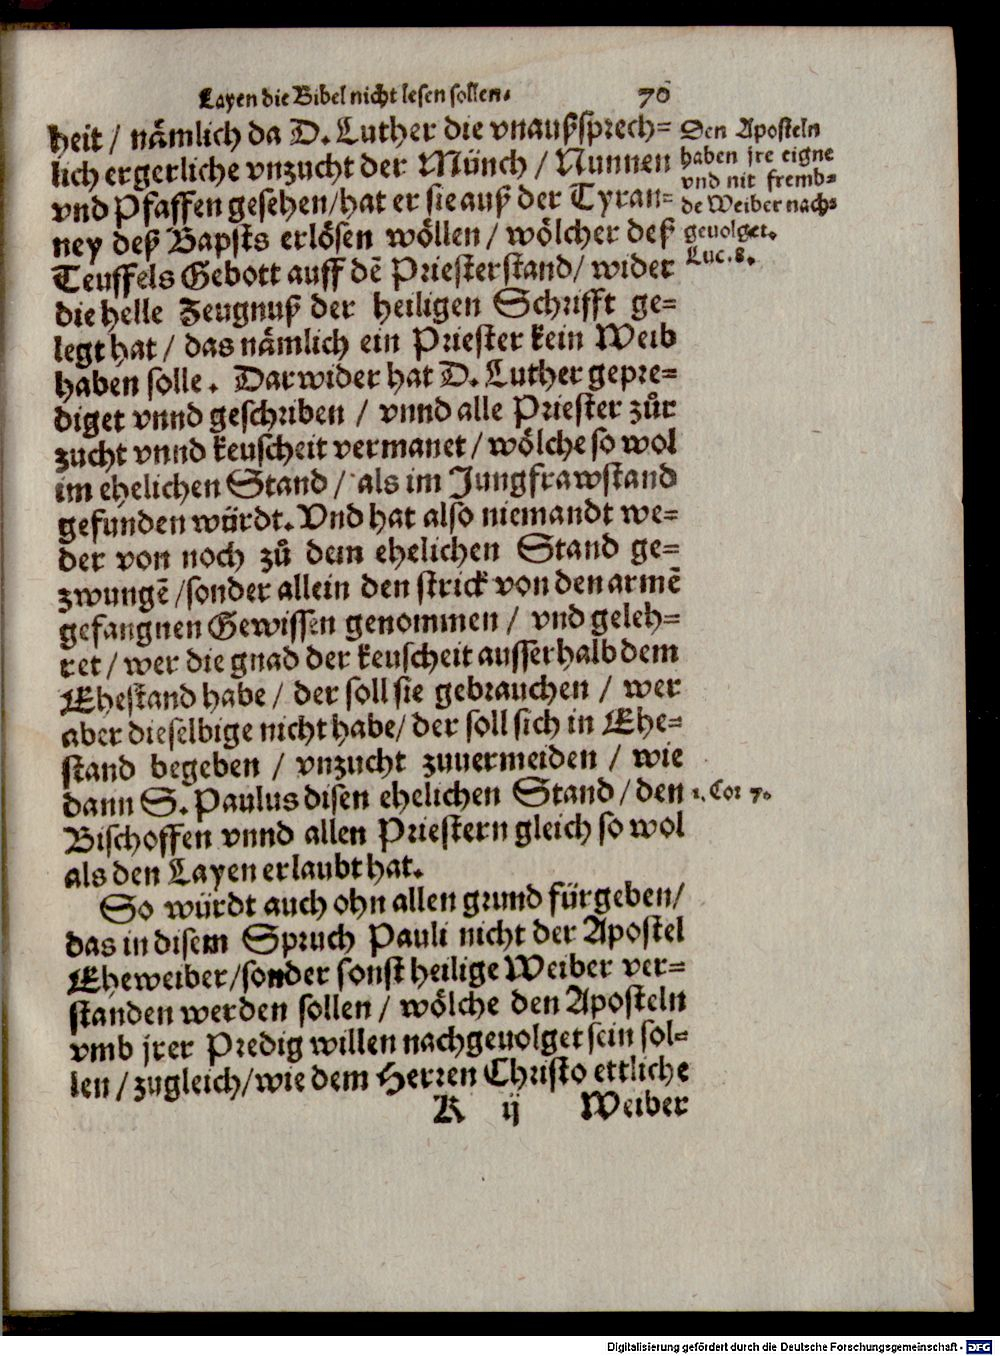 Layen die Bibel nicht lesen sollen. 70
heit / nämlich da D. Luther die vnaußsprech=
lich ergerliche vnzucht der Münch / Nunnen
vnd Pfaffen gesehen / hat er sie auß der Tyran=
ney deß Bapsts erlösen wöllen / wölcher deß
Teuffels Gebott auff dẽ Priesterstand / wider
die helle Zeugnuß der heiligen Schrifft ge=
legt hat / das nämlich ein Priester kein Weib
haben solle. Darwider hat D. Luther gepre=
diget vnnd geschriben / vnnd alle Priester zůr
zucht vnnd keuscheit vermanet / wölche so wol
im ehelichen Stand / als im Jungfrawstand
gefunden würdt. Vnd hat also niemandt we=
der von noch zů dem ehelichen Stand ge=
zwungẽ / sonder allein den strick von den armẽ
gefangnen Gewissen genommen / vnd geleh=
ret / wer die gnad der keuscheit ausserhalb dem
Ehestand habe / der soll sie gebrauchen / wer
aber dieselbige nicht habe / der soll sich in Ehe=
stand begeben / vnzucht zuuermeiden / wie
dann S. Paulus disen ehelichen Stand / den
Bischoffen vnnd allen Priestern gleich so wol
als den Layen erlaubt hat.
So würdt auch ohn allen grund fürgeben /
das in disem Spruch Pauli nicht der Apostel
Eheweiber / sonder sonst heilige Weiber ver=
standen werden sollen / wölche den Aposteln
vmb jrer Predig willen nachgeuolget sein sol=
len / zugleich / wie dem Herren Christo ettliche
K ij Weiber
Den Aposteln
haben jre eigne
vnd nit fremb=
de Weiber nach=
geuolget.
Luc. 8.
1. Cor 7.
Digitalisierung gefördert durch die Deutsche Forschungsgemeinschaft - DFG